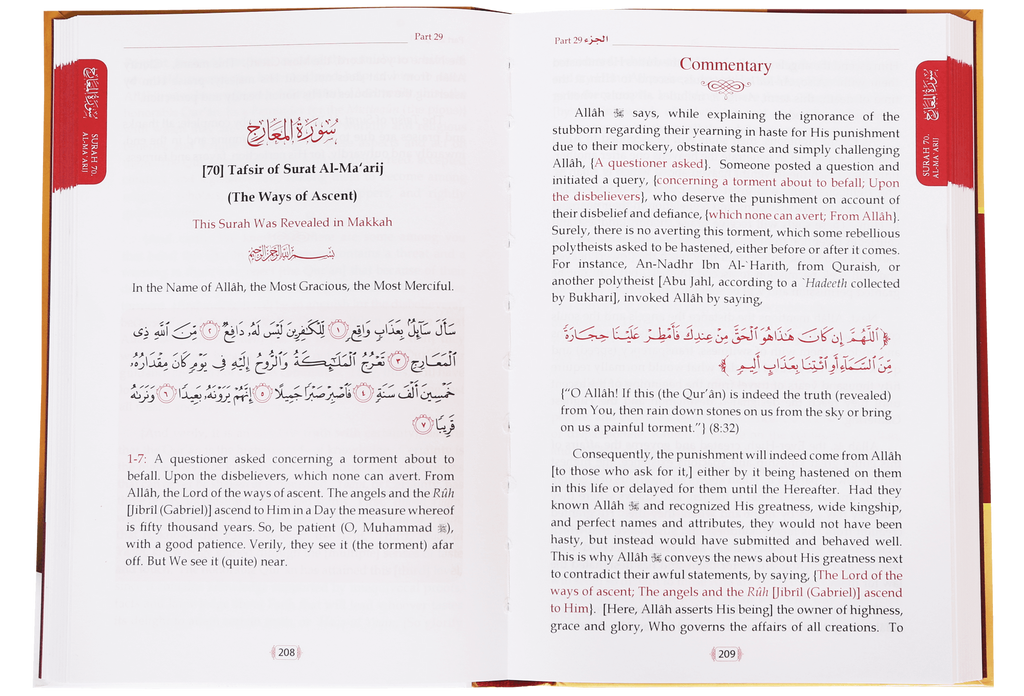 Part 29
سورة المعارج
SURAH 70.
AL-MA'ARIJ
سُورَةُ المَعَارِج
[70] Tafsir of Surat Al-Ma‘arij
(The Ways of Ascent)
This Surah Was Revealed in Makkah
بِسْمِ اللهِ الرَّحْمَنِ الرَّحِيمِ
In the Name of Allâh, the Most Gracious, the Most Merciful.
سَأَلَ سَآئِلٌۢ بِعَذَابٍ وَاقِعٍ ١ لِّلْكَٰفِرِينَ لَيْسَ لَهُۥ دَافِعٌ ٢ مِّنَ ٱللَّهِ ذِى
ٱلْمَعَارِجِ ٣ تَعْرُجُ ٱلْمَلَٰٓئِكَةُ وَٱلرُّوحُ إِلَيْهِ فِى يَوْمٍ كَانَ مِقْدَارُهُۥ
خَمْسِينَ أَلْفَ سَنَةٍ ٤ فَٱصْبِرْ صَبْرًا جَمِيلًا ٥ إِنَّهُمْ يَرَوْنَهُۥ بَعِيدًا ٦ وَنَرَىٰهُ
قَرِيبًا ٧
1-7: A questioner asked concerning a torment about to
befall. Upon the disbelievers, which none can avert. From
Allâh, the Lord of the ways of ascent. The angels and the Rûh
[Jibrîl (Gabriel)] ascend to Him in a Day the measure whereof
is fifty thousand years. So, be patient (O, Muhammad ﷺ),
with a good patience. Verily, they see it (the torment) afar
off. But We see it (quite) near.
208
Part 29 الجزء
سورة المعارج
SURAH 70.
AL-MA'ARIJ
Commentary
Allâh ﷻ says, while explaining the ignorance of the
stubborn regarding their yearning in haste for His punishment
due to their mockery, obstinate stance and simply challenging
Allâh, {A questioner asked}. Someone posted a question and
initiated a query, {concerning a torment about to befall; Upon
the disbelievers}, who deserve the punishment on account of
their disbelief and defiance, {which none can avert; From Allâh}.
Surely, there is no averting this torment, which some rebellious
polytheists asked to be hastened, either before or after it comes.
For instance, An-Nadhr Ibn Al-`Harith, from Quraish, or
another polytheist [Abu Jahl, according to a `Hadeeth collected
by Bukhari], invoked Allâh by saying,
﴿ٱللَّهُمَّ إِن كَانَ هَٰذَا هُوَ ٱلْحَقَّ مِنْ عِندِكَ فَأَمْطِرْ عَلَيْنَا حِجَارَةً
مِّنَ ٱلسَّمَآءِ أَوِ ٱئْتِنَا بِعَذَابٍ أَلِيمٍ﴾
{“O Allâh! If this (the Qur’ân) is indeed the truth (revealed)
from You, then rain down stones on us from the sky or bring
on us a painful torment.”} (8:32)
Consequently, the punishment will indeed come from Allâh
[to those who ask for it,] either by it being hastened on them
in this life or delayed for them until the Hereafter. Had they
known Allâh ﷻ and recognized His greatness, wide kingship,
and perfect names and attributes, they would not have been
hasty, but instead would have submitted and behaved well.
This is why Allâh ﷻ conveys the news about His greatness next
to contradict their awful statements, by saying, {The Lord of the
ways of ascent; The angels and the Rûh [Jibrîl (Gabriel)] ascend
to Him}. [Here, Allâh asserts His being] the owner of highness,
grace and glory, Who governs the affairs of all creations. To
209